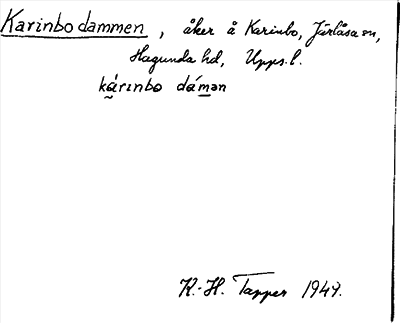 Karinbodammen, åker å Karinbo, Järlåsa sn,
Hagunda hd, Upps. l.
kárɪnbo dámən
K.-H. Tapper 1949.